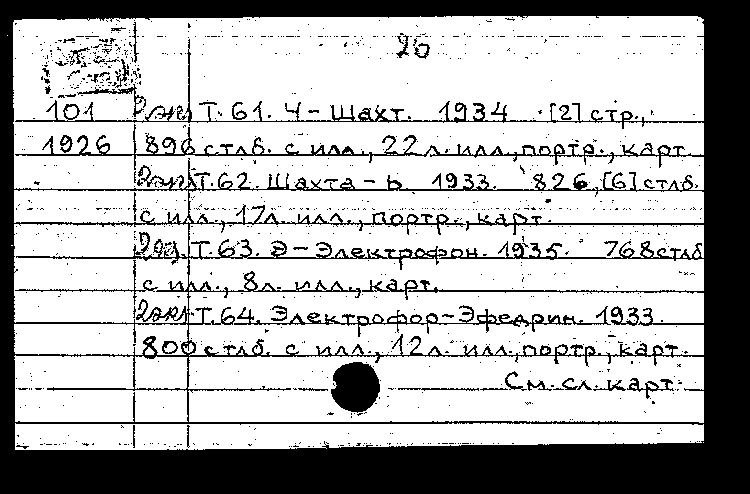 26
101 2 экз Т. 61. Ч - Шахт. 1934 [2] стр.,
1926 896 стлб. с илл., 22 л. илл., портр., карт.
2 экз Т. 62. Шахта - Ь 1933. 826, [6] стлб.
с илл., 17 л. илл., портр., карт.
2 экз. Т. 63. Э - Электрофон. 1935. 768 стлб
с илл., 8 л. илл., карт.
2 экз Т. 64. Электрофор - Эфедрин. 1933.
800 стлб. с илл., 12 л. илл., портр., карт.
См. сл. карт.